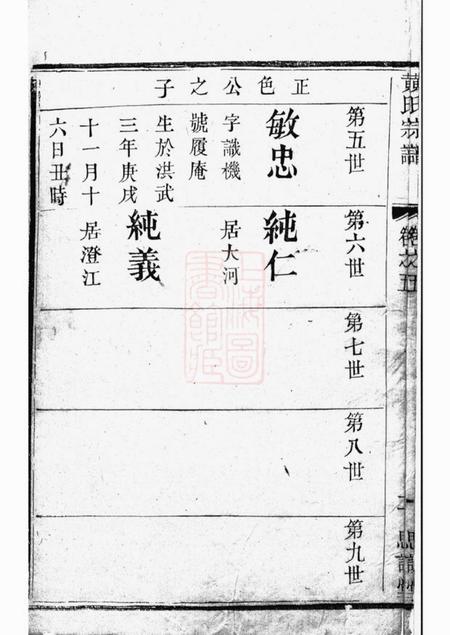 黃氏宗譜
卷之五
正色公之子
第五世
敏忠
字識機
號履庵
生於洪武
三年庚戌
十一月十
六日丑時
第六世
純仁
居大河
純義
居澄江
第七世
第八世
第九世
上海圖
書館藏